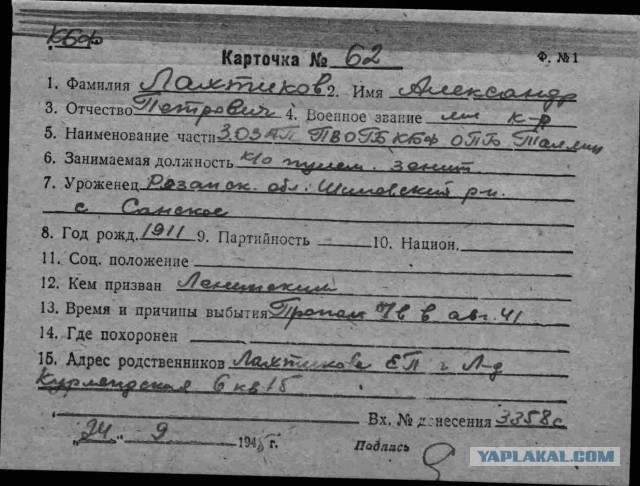 КБФ
Карточка № 62 Ф. №1
1. Фамилия Лахтиков 2. Имя Александр
3. Отчество Петрович 4. Военное звание мл к-р
5. Наименование части 3 ОЗАП ПВО ГБ КБФ ОПБ Таллин
6. Занимаемая должность к/о пулем. зенит.
7. Уроженец Рязанск. обл. Шиловский р-н.
с Санское
8. Год рожд. 1911 9. Партийность 10. Национ.
11. Соц. положение
12. Кем призван Ленинский
13. Время и причины выбытия Пропал б/в в авг. 41
14. Где похоронен
15. Адрес родственников Лахтикова ЕП г Л-д
Курляндская 6 кв 15
Вх. № донесения 3358с
"24" 9 194 г.
Подпись
YAPLAKAL.COM